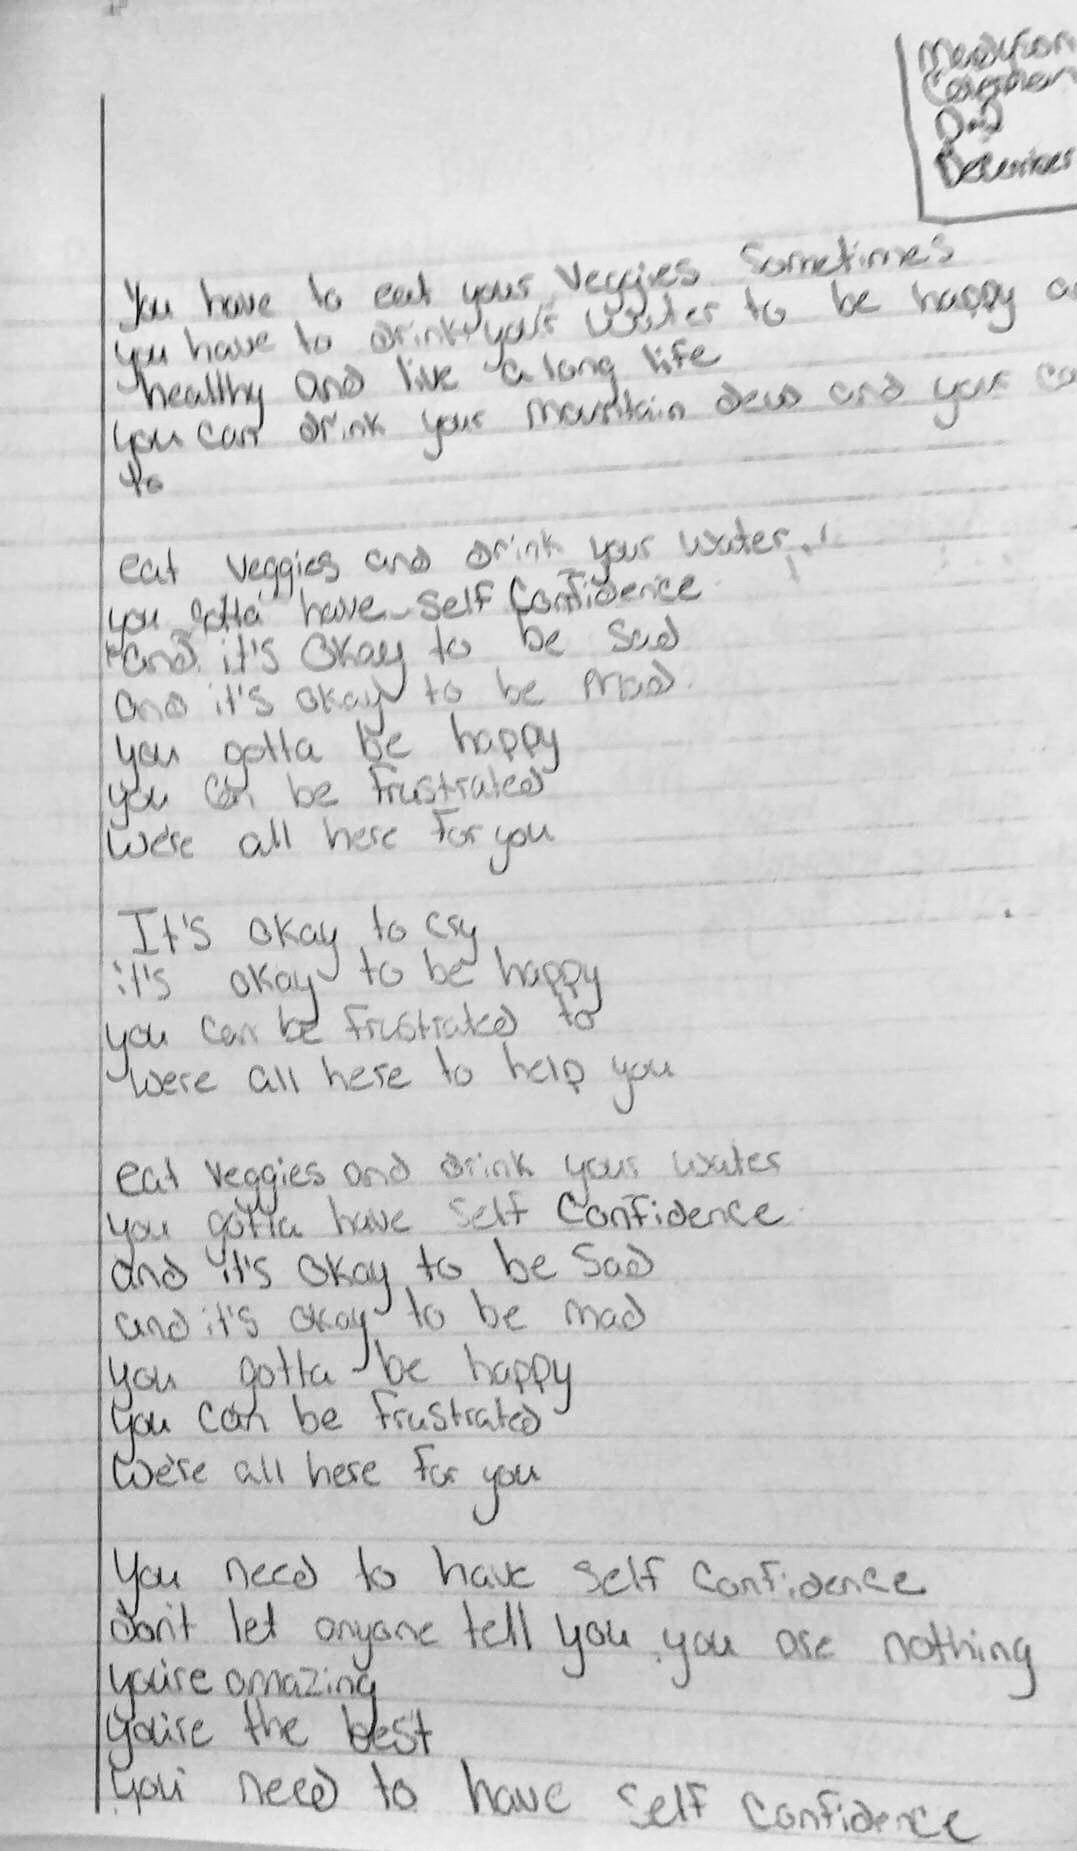 You have to eat your veggies sometimes
you have to drink your water to be happy
healthy and live a long life
you can drink your mountain dew and your
to
eat veggies and drink your water
you gotta have self confidence
and it's okay to be sad
and it's okay to be mad
you gotta be happy
you can be frustrated
We're all here for you
It's okay to cry
it's okay to be happy
you can be frustrated to
were all here to help you
eat veggies and drink your water
you gotta have self confidence
and it's okay to be sad
and it's okay to be mad
you gotta be happy
you can be frustrated
We're all here for you
You need to have self confidence
don't let anyone tell you you are nothing
you're amazing
you're the best
you need to have self confidence